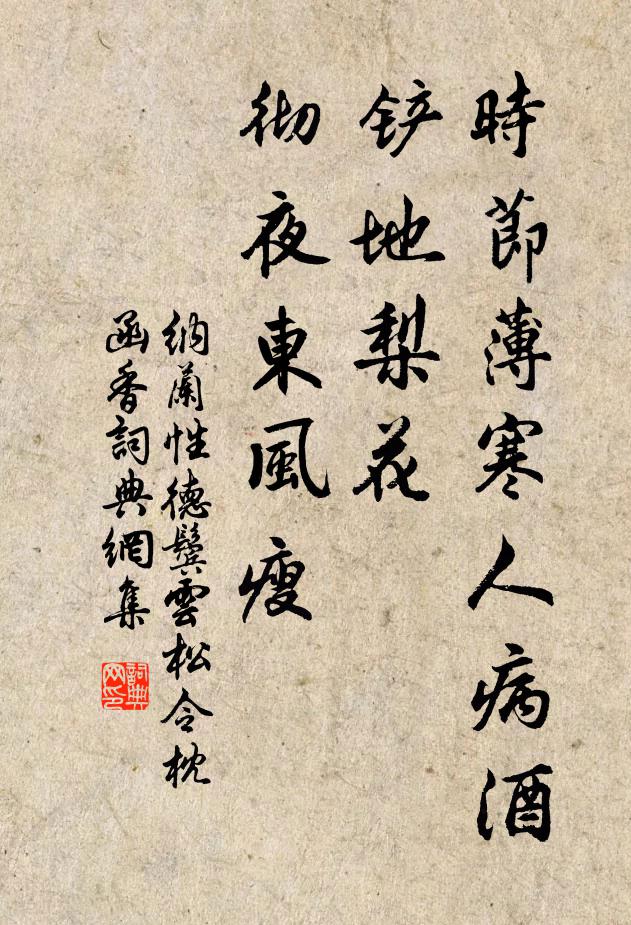 時節薄寒人病酒
铲地梨花
彻夜東風瘦
纳蘭性德鬓雲松令枕
函香詞典網集
詞典
网印